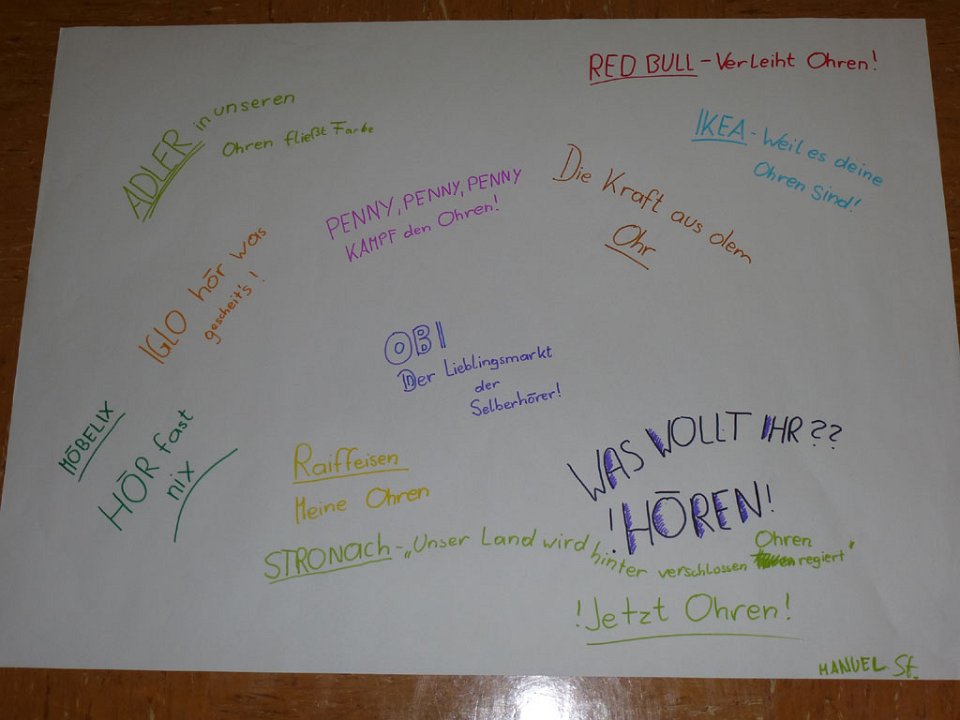 RED BULL - Verleiht Ohren!
ADLER in unseren
Ohren fließt Farbe
IKEA - Weil es deine
Ohren sind!
PENNY, PENNY, PENNY
KAMPF den Ohren!
Die Kraft aus dem
Ohr
IGLO hör was
gescheit's!
OBI
Der Lieblingsmarkt
der
Selberhörer!
MÖBELIX
HÖR fast
nix
Raiffeisen
Meine Ohren
WAS WOLLT IHR??
!HÖREN!
STRONACH - „Unser Land wird
hinter verschlossen Ohren regiert"
!Jetzt Ohren!
MANUEL St.